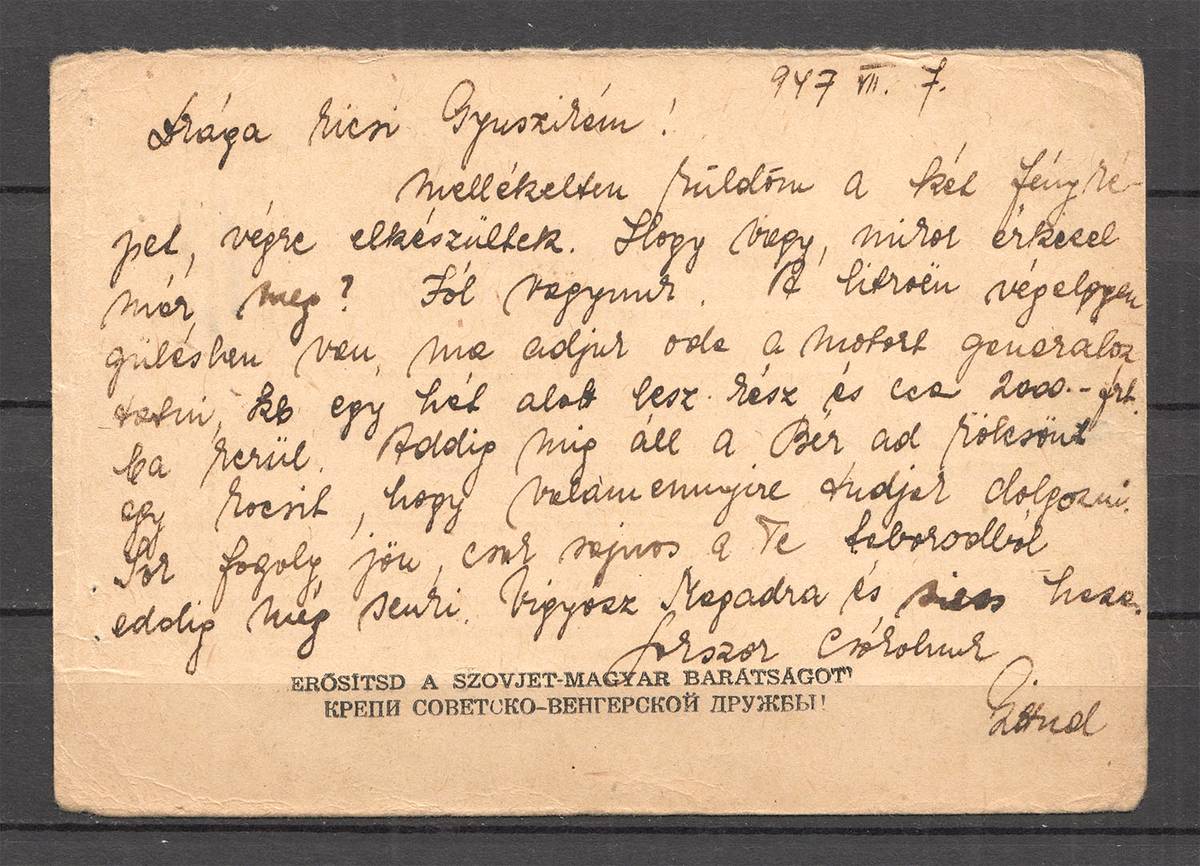 947 VII. 7.
Drága kicsi Gyuszikám!
Mellékelten küldöm a két fényké-
pet, végre elkészültek. Hogy vagy, mikor érkesel
már meg? Jól vagyunk. A Citroën végelgyen
gülésben van, ma adjuk oda a motort generáloz
tatni, kb egy hét alatt lesz kész és cca 2000.- frt.
ba kerül. Addig mig áll a Bér ad kölcsönt
egy kocsit, hogy valamennyire tudjak dolgozni.
Sok fogoly jön, csak sajnos a Te táborodból
eddig még senki. Vigyázz Magadra és siess haza.
Sokszor Csókolunk
ERŐSÍTSD A SZOVJET-MAGYAR BARÁTSÁGOT!
КРЕПИ СОВЕТСКО-ВЕНГЕРСКОЙ ДРУЖБЫ!